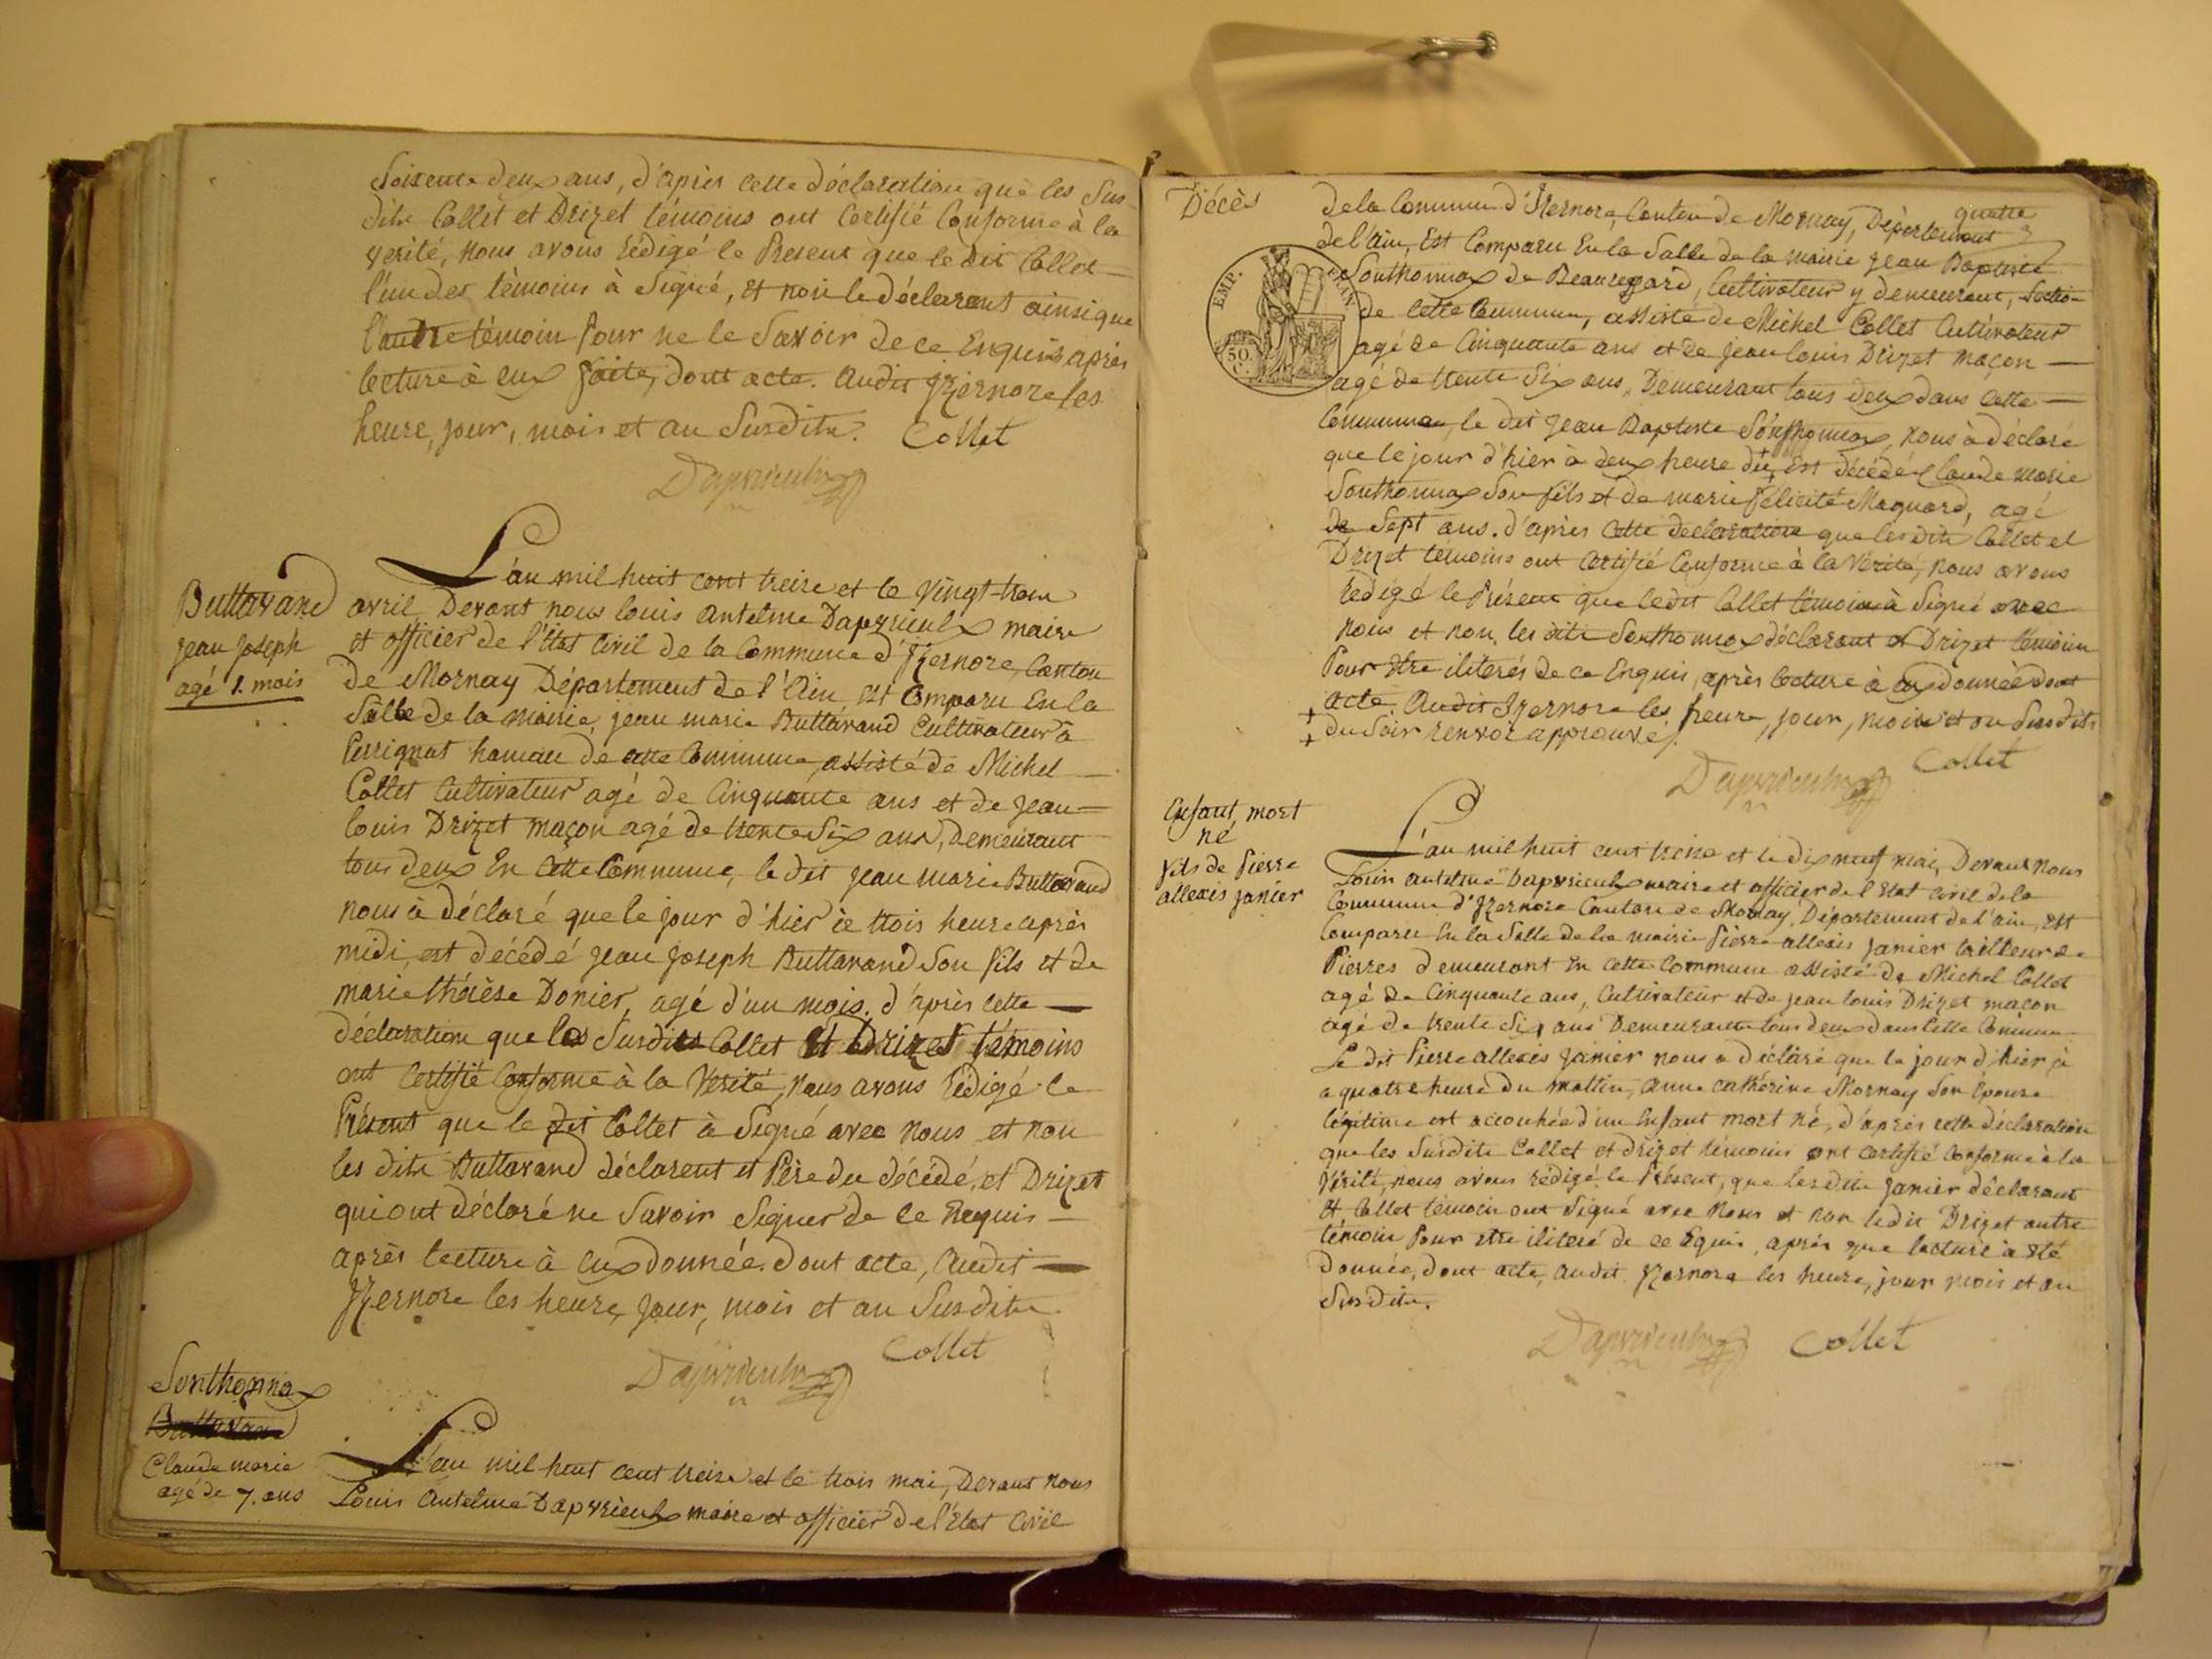 Soixente deux ans, d'après cette déclaration que les Sus-
dits Collet et Drizet témoins ont Certifié Conforme à la
verité, nous avons rédigé le Present que le dit Collet
l'un des témoins à Signé, et non le déclarant ainsi que
l'autre témoin pour ne le Savoir de ce Enquis après
lecture à eux faite, dont acte. Audit Izernore les
heure, jour, mois et an Susdits. Collet
Dapvrieulx
Buttavand
jean joseph
agé 1. mois
L'an mil huit cent treize et le Vingt-trois
avril, Devant nous louis Antelme Dapvrieulx maire
et officier de l'état Civil de la Commune d'Izernore, Canton
de Mornay Département de l'Ain, est Comparu En la
Salle de la mairie, jean marie Buttavand Cultivateur à
Perrignat hameau de cette Commune, assisté de Michel
Collet Cultivateur agé de Cinquante ans et de jean
louis Drizet maçon agé de trente Six ans, demeurant
tous deux En Cette Commune, le dit jean marie Buttavand
nous à déclaré que le jour d'hier à trois heure après
midi, est décédé jean joseph Buttavand Son fils et de
marie thérèse Donier, agé d'un mois, d'après cette
déclaration que les Susdits Collet et Drizet témoins
ont Certifié Conforme à la Verité, nous avons rédigé le
Présent que le dit Collet à Signé avec nous et non
les dits Buttavand déclarent et Père du décédé, et Drizet
qui ont déclaré ne Savoir Signer de ce Requis
après lecture à eux donnée. dont acte, Audit
Izernore les heure, jour, mois et an Susdits.
Collet
Dapvrieulx
Sonthonnax
Buttavand
Claude marie
agé de 7. ans
L'an mil huit cent treize et le trois mai, Devant nous
Louis Antelme Dapvrieulx maire et officier de l'état Civil
Décès
quatre
EMP. FRAN.
50.
C.
de la Commune d'Izernore, Canton de Mornay, Département
de l'Ain, Est Comparu En la Salle de la mairie jean Baptiste
Sonthonnax de Beauregard, Cultivateur y demeurant, Section
de cette Commune, assisté de Michel Collet Cultivateur
agé de Cinquante ans et de jean louis Drizet maçon
agé de trente Six ans, Demeurant tous deux dans Cette
Commune, le dit jean Baptiste Sonthonnax, nous à déclaré
que le jour d'hier à deux heure du + Est décédé Claude marie
Sonthonnax Son fils et de marie félicité Maquard, agé
de Sept ans. d'après Cette déclaration que les dits Collet et
Drizet témoins ont Certifié Conforme à la Vérité, nous avons
rédigé le Présent que ledit Collet témoin à Signé avec
nous et non les dits Sonthonnax déclarant et Drizet témoin
Pour être iliterés de ce Enquis, après lecture à eux donnée dont
acte. Audit Izernore les heure, jour, mois et an Susdits
+ du Soir renvoi approuvé.
+
Collet
Dapvrieulx
Enfant mort
né
fils de Pierre
allexis janier
L'an mil huit cent treize et le dix neuf mai, Devant nous
Louis antelme Dapvrieulx maire et officier de l'Etat Civil de la
Commune d'Izernore Canton de Mornay, Département de l'ain, est
Comparu En la Salle de la mairie Pierre allexis janier tailleur de
Pierres demeurant En cette Commune assisté de Michel Collet
agé de Cinquante ans, Cultivateur et de jean louis Drizet maçon
agé de trente Six ans Demeurants tous deux dans Cette Commune
Le dit Pierre allexis janier nous a déclaré que le jour d'hier à
a quatre heure du mattin, anne cathérine Mornay Son épouse
légitime est accouchée d'un Enfant mort né, d'après cette déclaration
que les Susdits Collet et drizet témoins ont certifié Conforme à la
Vérité, nous avons rédigé le Présent, que les dits janier déclarant
et Collet témoin ont Signé avec nous et non ledit Drizet autre
témoin Pour être iliteré de ce Equis, après que lecture à été
Donnée, dont acte, audit Izernore les heure, jour mois et an
Susdits.
Dapvrieulx Collet